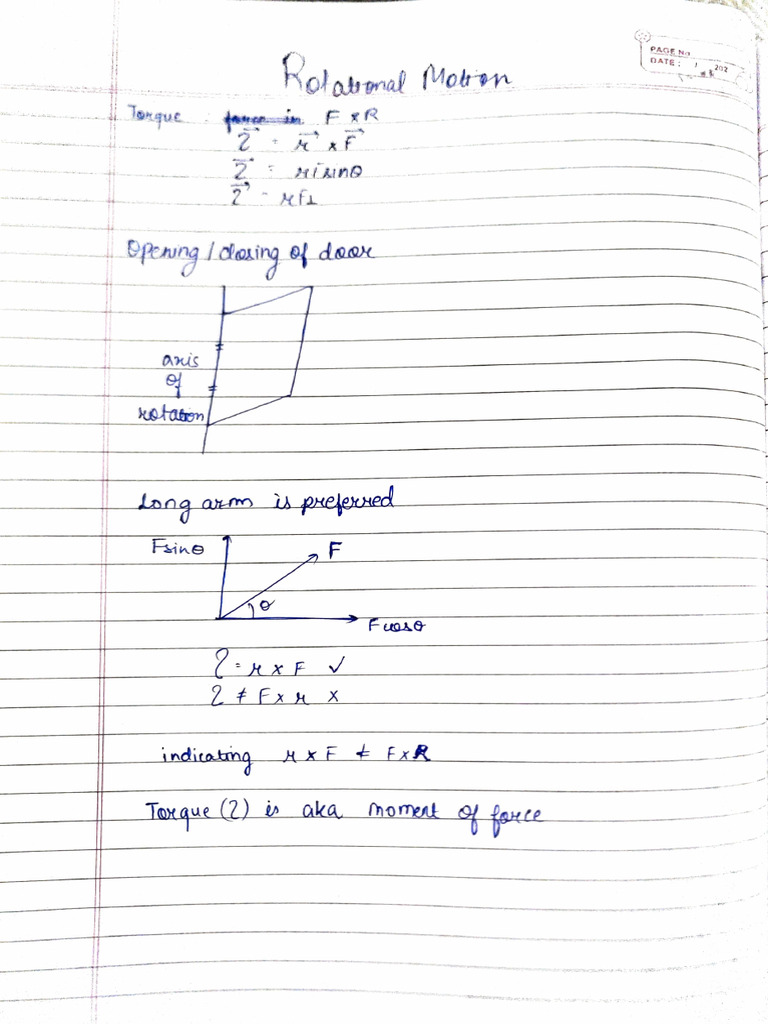 PAGE No.
DATE: / /202
Rotational Motion
Torque F x R
τ⃗ = r⃗ x F⃗
τ⃗ = rFsinθ
τ⃗ = rF⊥
Opening / closing of door
axis
of
rotation
Long arm is preferred
Fsinθ
F
θ
Fcosθ
τ = r x F ✓
τ ≠ F x r x
indicating r x F ≠ F x R
Torque (τ) is aka moment of force